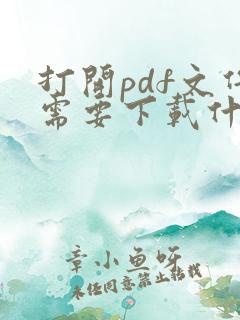 打開pdf文件
需要下載什
章小魚呀
未經同意禁止轉載